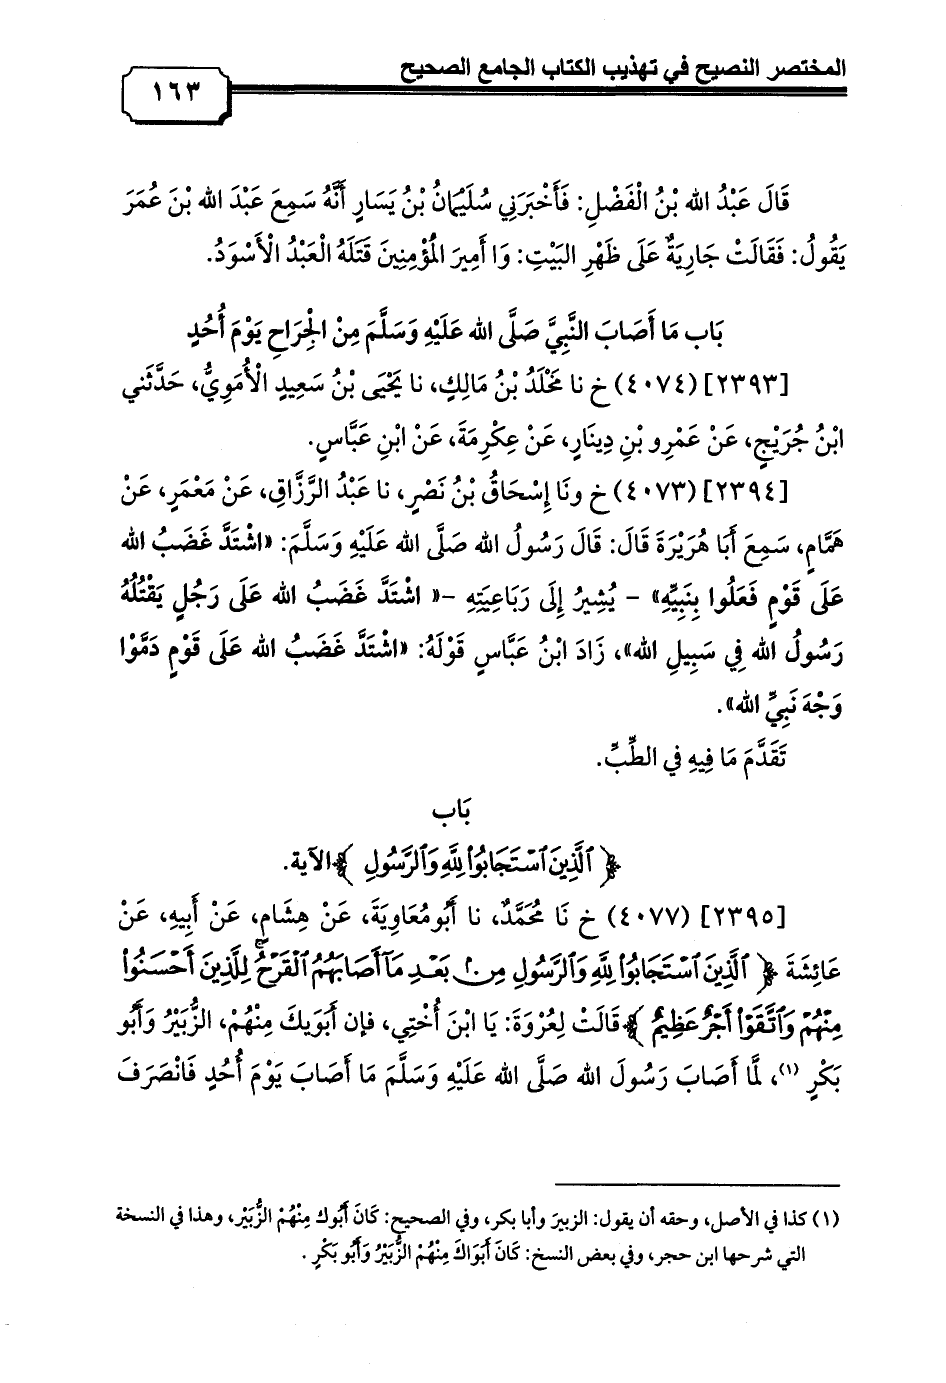 المختصر النصيح في تهذيب الكتاب الجامع الصحيح
١٦٣
قَالَ عَبْدُ الله بْنُ الْفَضْلِ: فَأَخْبَرَنِي سُلَيْمَانُ بْنُ يَسَارٍ أَنَّهُ سَمِعَ عَبْدَ الله بْنَ عُمَرَ
يَقُولُ: فَقَالَتْ جَارِيَةٌ عَلَى ظَهْرِ البَيْتِ: وَا أَمِيرَ المُؤْمِنِينَ قَتَلَهُ الْعَبْدُ الْأَسْوَدُ.
بَاب مَا أَصَابَ النَّبِيَّ صَلَّى الله عَلَيْهِ وَسَلَّمَ مِنْ الْجِرَاحِ يَوْمَ أُحُدٍ
[٢٣٩٣] (٤٠٧٤) خ نا مَخْلَدُ بْنُ مَالِكٍ، نا يَحْيَى بْنُ سَعِيدٍ الْأُمَوِيُّ، حَدَّثَنِي
ابْنُ جُرَيْجٍ، عَنْ عَمْرِو بْنِ دِينَارٍ، عَنْ عِكْرِمَةَ، عَنْ ابْنِ عَبَّاسٍ.
[٢٣٩٤] (٤٠٧٣) خ ونَا إِسْحَاقُ بْنُ نَصْرٍ، نا عَبْدُ الرَّزَّاقِ، عَنْ مَعْمَرٍ، عَنْ
هَمَّامٍ، سَمِعَ أَبَا هُرَيْرَةَ قَالَ: قَالَ رَسُولُ الله صَلَّى الله عَلَيْهِ وَسَلَّمَ: «اشْتَدَّ غَضَبُ الله
عَلَى قَوْمٍ فَعَلُوا بِنَبِيِّهِ» - يُشِيرُ إِلَى رَبَاعِيَتِهِ -« اشْتَدَّ غَضَبُ الله عَلَى رَجُلٍ يَقْتُلُهُ
رَسُولُ الله فِي سَبِيلِ الله»، زَادَ ابْنُ عَبَّاسٍ قَوْلَهُ: «اشْتَدَّ غَضَبُ الله عَلَى قَوْمٍ دَمَّوْا
وَجْهَ نَبِيِّ الله».
تَقَدَّمَ مَا فِيهِ في الطِّبِّ.
بَاب
﴿الَّذِينَ اسْتَجَابُوا لِلَّهِ وَالرَّسُولِ﴾ الآية.
[٢٣٩٥] (٤٠٧٧) خ نَا مُحَمَّدٌ، نا أَبُو مُعَاوِيَةَ، عَنْ هِشَامٍ، عَنْ أَبِيهِ، عَنْ
عَائِشَةَ ﴿الَّذِينَ اسْتَجَابُوا لِلَّهِ وَالرَّسُولِ مِنْ بَعْدِ مَا أَصَابَهُمُ الْقَرْحُ لِلَّذِينَ أَحْسَنُوا
مِنْهُمْ وَاتَّقَوْا أَجْرٌ عَظِيمٌ﴾ قَالَتْ لِعُرْوَةَ: يَا ابْنَ أُخْتِي، فإن أَبَوَيكَ مِنْهُمْ، الزُّبَيْرُ وَأَبُو
بَكْرٍ (١)، لَمَّا أَصَابَ رَسُولَ الله صَلَّى الله عَلَيْهِ وَسَلَّمَ مَا أَصَابَ يَوْمَ أُحُدٍ فَانْصَرَفَ
(١) كذا في الأصل، وحقه أن يقول: الزبيرَ وأبا بكر، وفي الصحيح: كَانَ أَبُوك مِنْهُمْ الزُّبَيْر، وهذا في النسخة
التي شرحها ابن حجر، وفي بعض النسخ: كَانَ أَبَوَاكَ مِنْهُمْ الزُّبَيْرُ وَأَبُو بَكْرٍ .